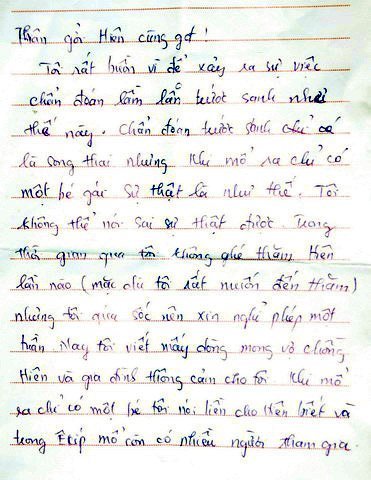 Thân gởi Hiên cùng gđ!
Tôi rất buồn vì để xảy ra sự việc
chẩn đoán lầm lẫn trước sanh như
thế này. Chẩn đoán trước sanh chị có
là song thai nhưng khi mổ ra chỉ có
một bé gái sự thật là như thế. Tôi
không thể nói sai sự thật được. Trong
thời gian qua tôi không ghé thăm Hiên
lần nào (mặc dù tôi rất muốn đến thăm)
nhưng tôi quá sốc nên xin nghỉ phép một
tuần. Nay tôi viết mấy dòng mong vợ chồng
Hiên và gia đình thông cảm cho tôi khi mổ
ra chỉ có một bé tôi nói liền cho Hiên biết và
trong Êkíp mổ còn có nhiều người tham gia.